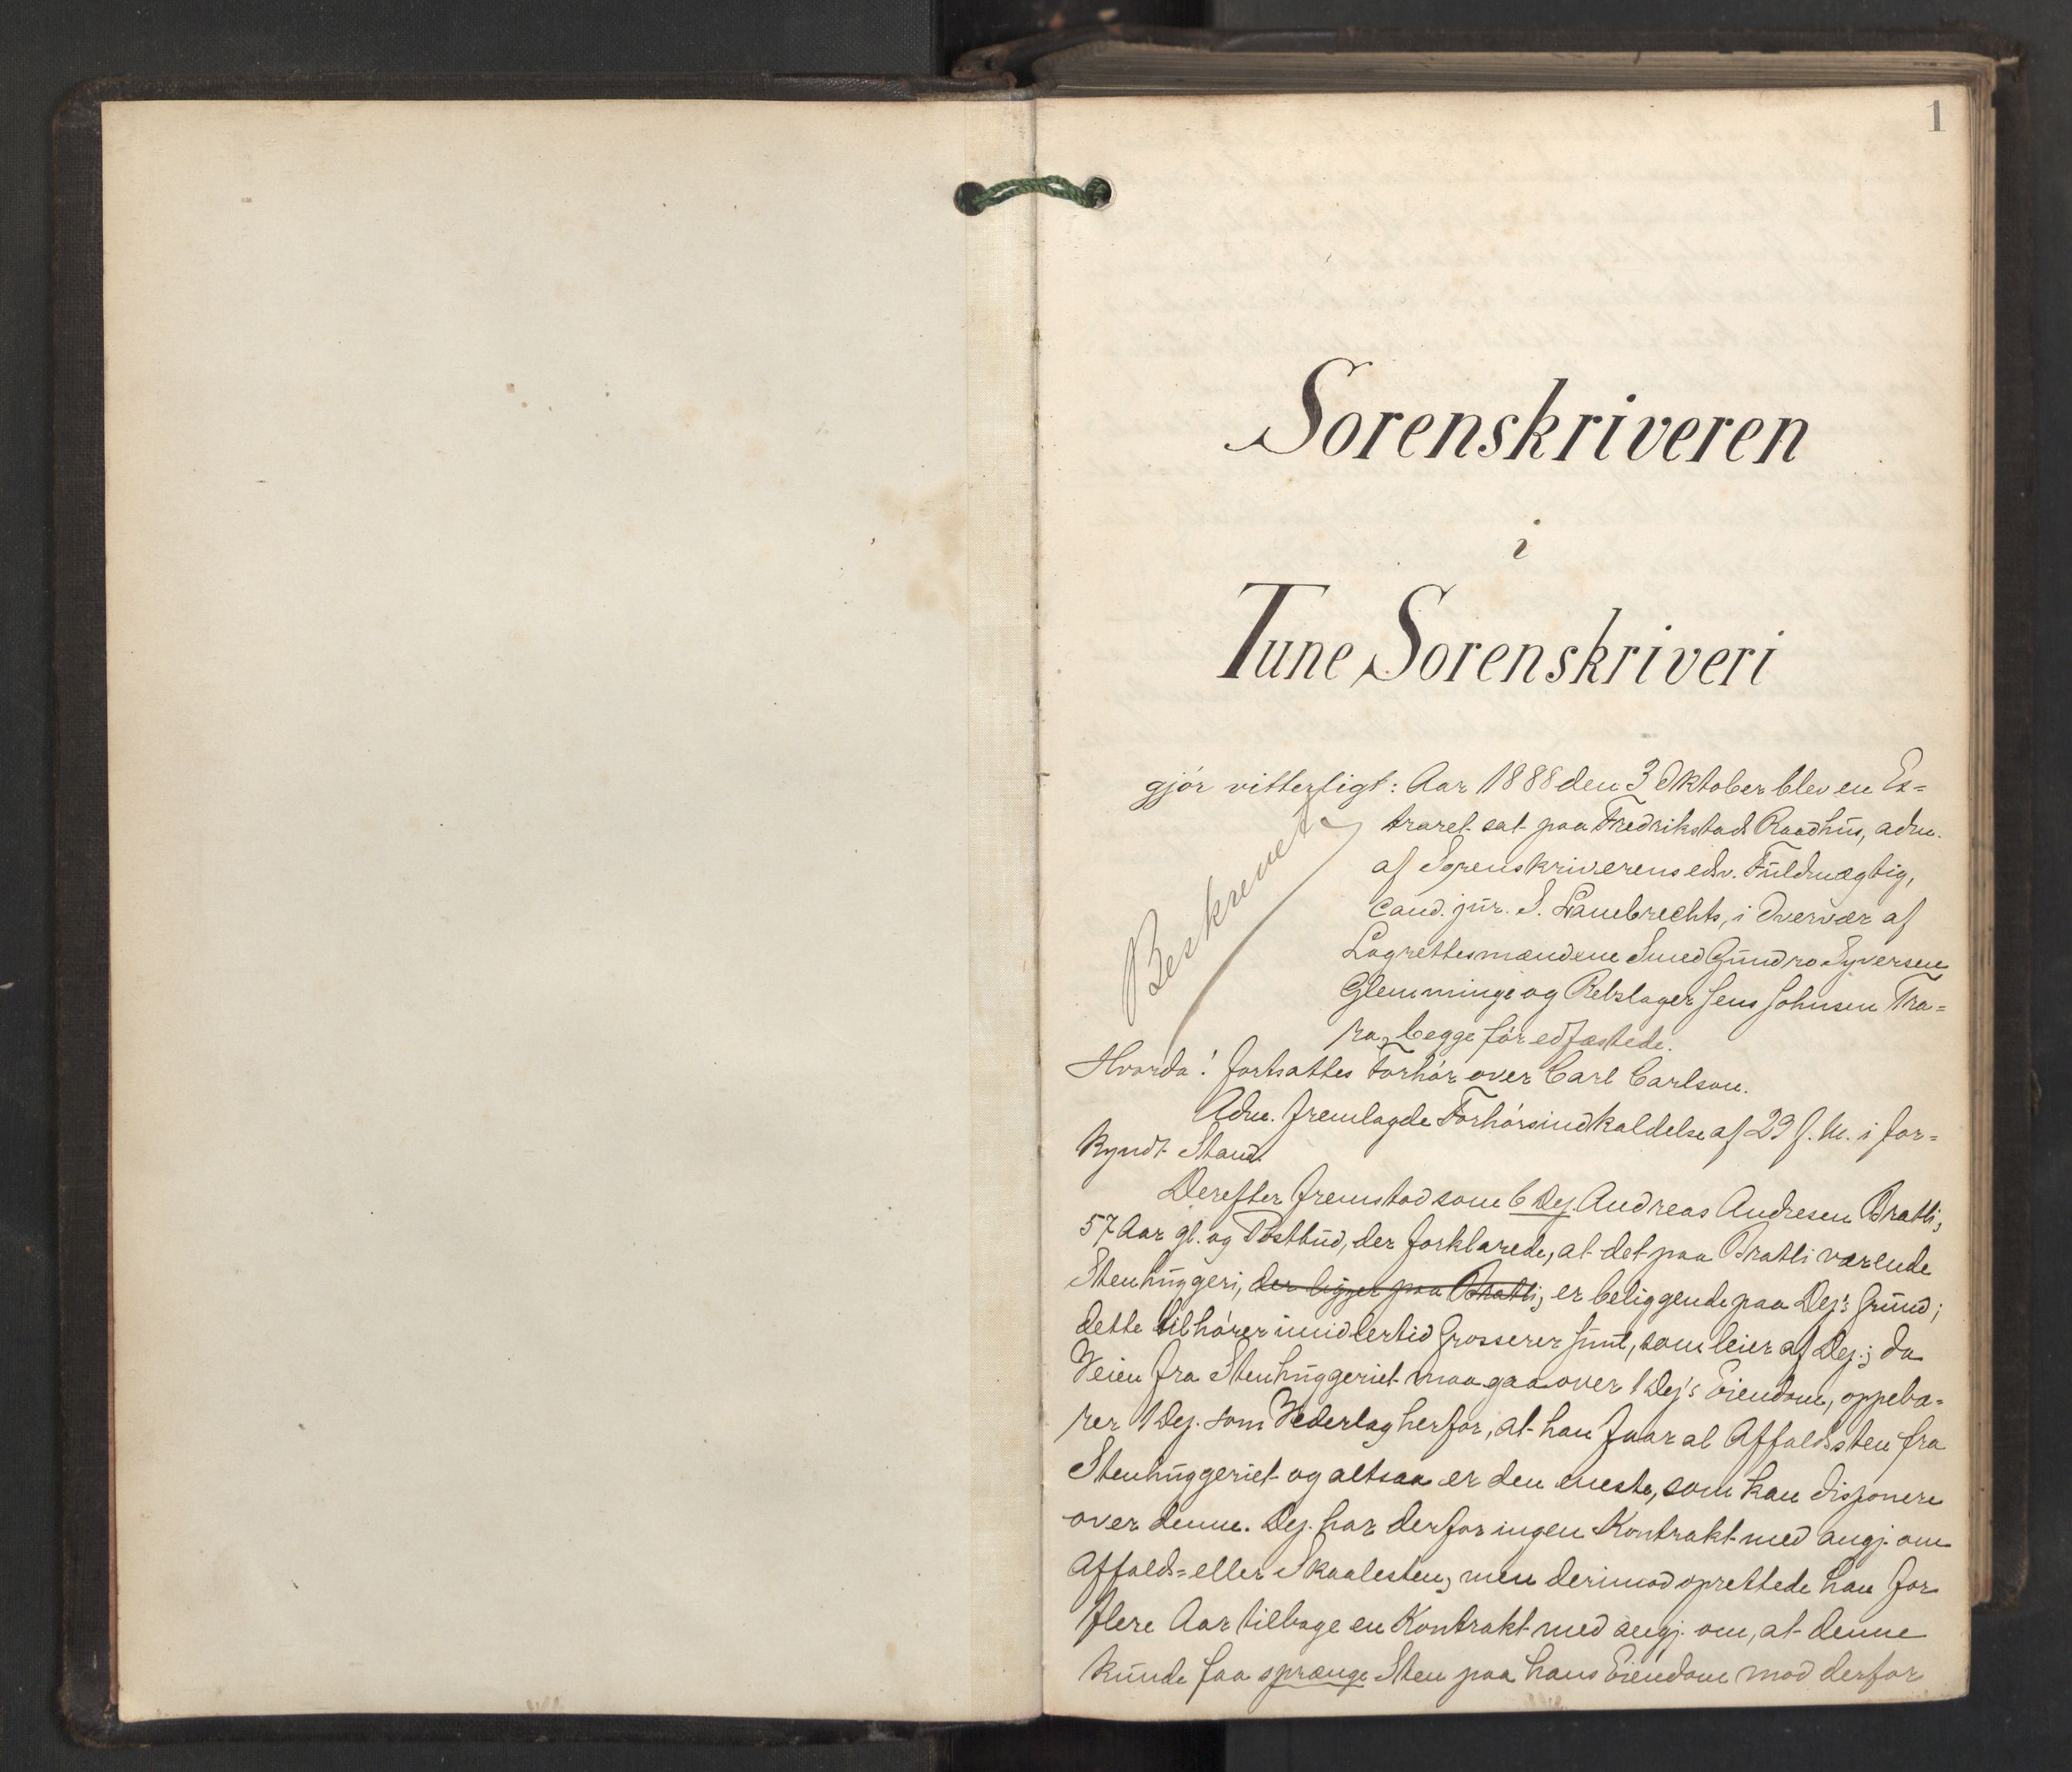 1
Sorenskriveren
i
Tune Sorenskriveri
gjör vitterligt: Aar 1888 den 3 Oktober blev en Ex=
traret sat paa Fredrikstad Raadhus, adm.
af Sorenskriverens edsv. Fuldmægtig,
Cand. jur. S. Lambrechts, i Overvær af
Lagrettesmændene Smed Gundro Syversen
Glemminge og Rebslager Jens Johnsen Tra=
ra, begge för edfæstede.
Beskrevet
Hvorda! fortsattes Forhör over Carl Carlson.
Adm. fremlagde Forhörsindkaldelse af 29 f. M. i for=
kyndt Stand.
Derefter fremstod som 6 Dep. Andreas Andresen Bratli,
57 Aar gl. og Postbud, der forklarede, at det paa Bratli værende
Stenhuggeri, der ligger paa Bratli, er beliggende paa Dep's Grund;
dette tilhörer imidlertid Grosserer Juul, som leier af Dep.; da
Veien fra Stenhuggeriet maa gaa over 1 Dep's Eiendom, oppebæ=
rer 1 Dep. som Vederlag herfor, at han faar al Affaldssten fra
Stenhuggeriet og altsaa er den eneste, som kan disponere
over denne. Dep. har derfor ingen Kontrakt med angj. om
Affalds= eller Skaalesten, men derimod oprettede han for
flere Aar tilbage en Kontrakt med angj. om, at denne
kunde faa sprænge Sten paa hans Eiendom mod derfor